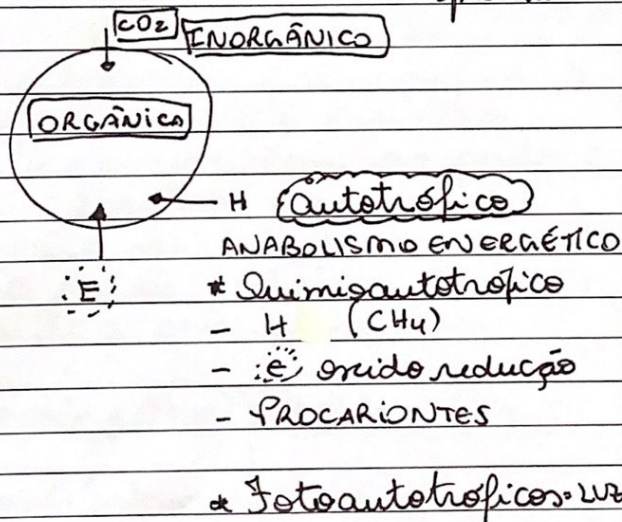 CO2 INORGÂNICO
ORGÂNICA
H autotrófico
ANABOLISMO ENERGÉTICO
E * Quimioautotrófico
- H (CH4)
- e oxido redução
- PROCARIONTES
* Fotoautotróficos = LUZ